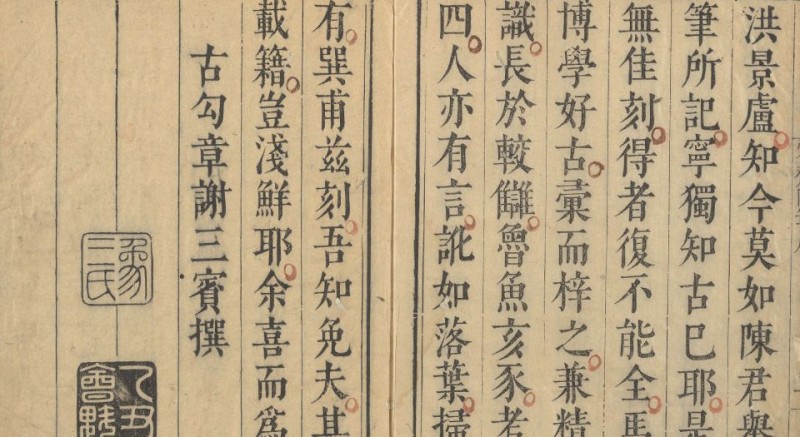 洪景盧知今莫如陳君舉
筆所記寧獨知古巳耶是
無佳刻得者復不能全馬
博學好古彙而梓之兼精
識長於較讎魯魚亥豕者
四人亦有言訛如落葉掃
有巽甫兹刻吾知免夫其
載籍豈淺鮮耶余喜而爲
古勾章謝三賓撰
象三氏
乙丑會魁